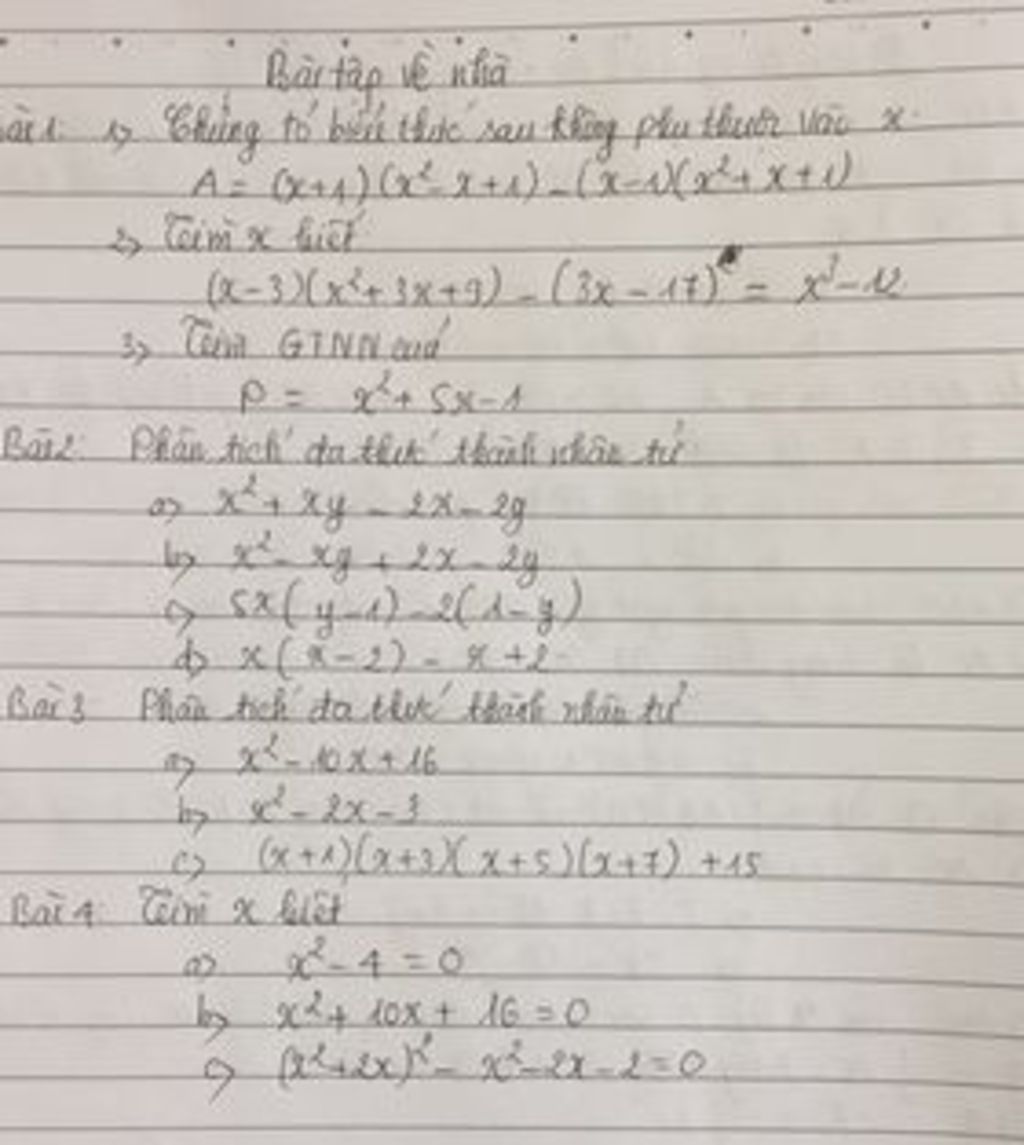 Bài tập về nhà
Bài 1: 1) Chứng tỏ biểu thức sau không phụ thuộc vào x.
A = (x+1)(x² - x + 1) - (x-1)(x² + x + 1)
2) Tìm x biết
(x-3)(x² + 3x + 9) - (3x - 17) = x³ - 12
3) Tìm GTNN của
P = x² + 5x - 1
Bài 2: Phân tích đa thức thành nhân tử
a) x² + xy - 2x - 2y
b) x² - xy + 2x - 2y
c) 5x(y-1) - 2(1-y)
d) x(x-2) - x + 2
Bài 3 Phân tích đa thức thành nhân tử
a) x² - 10x + 16
b) x² - 2x - 3
c) (x+1)(x+3)(x+5)(x+7) + 15
Bài 4: Tìm x biết
a) x² - 4 = 0
b) x² + 10x + 16 = 0
c) (x² + 2x)² - x² - 2x - 2 = 0